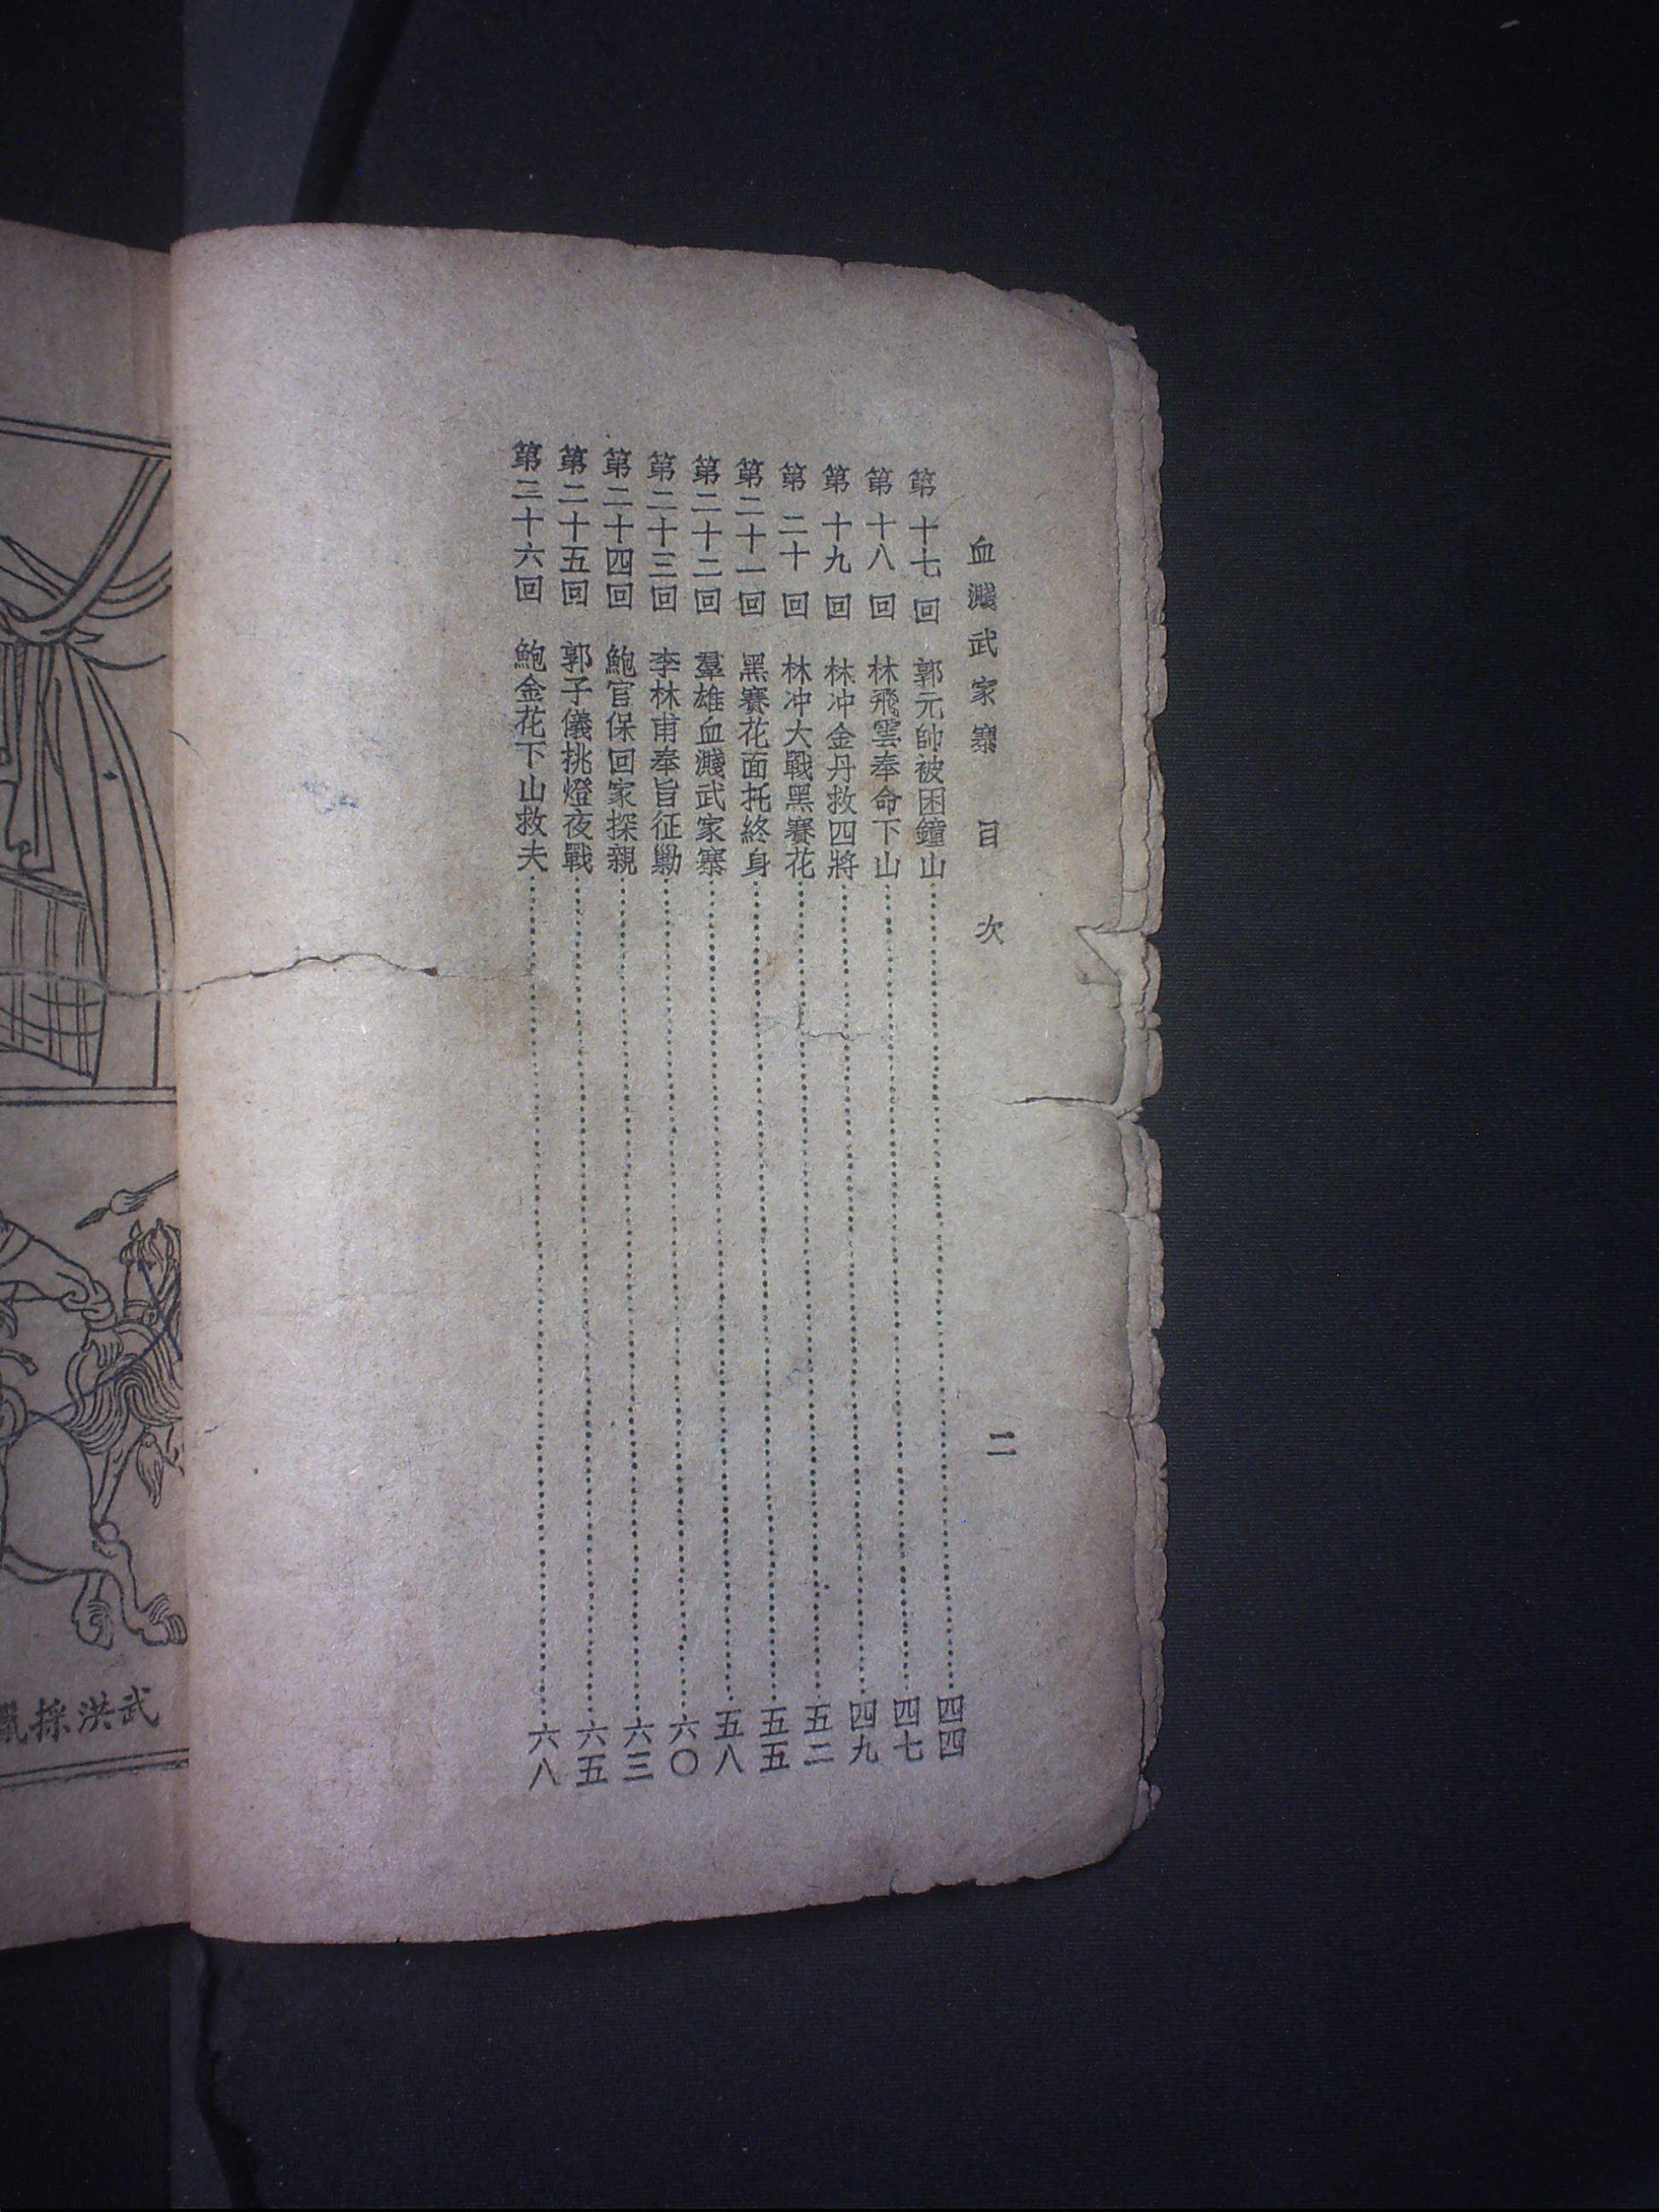 血濺武家寨　目　次　二
第十七回　郭元帥被困鐘山……四四
第十八回　林飛雲奉命下山……四七
第十九回　林冲金丹救四將……四九
第二十回　林冲大戰黑賽花……五二
第二十一回　黑賽花面托終身……五五
第二十二回　羣雄血濺武家寨……五八
第二十三回　李林甫奉旨征勦……六〇
第二十四回　鮑官保回家探親……六三
第二十五回　郭子儀挑燈夜戰……六五
第三十六回　鮑金花下山救夫……六八
武洪採